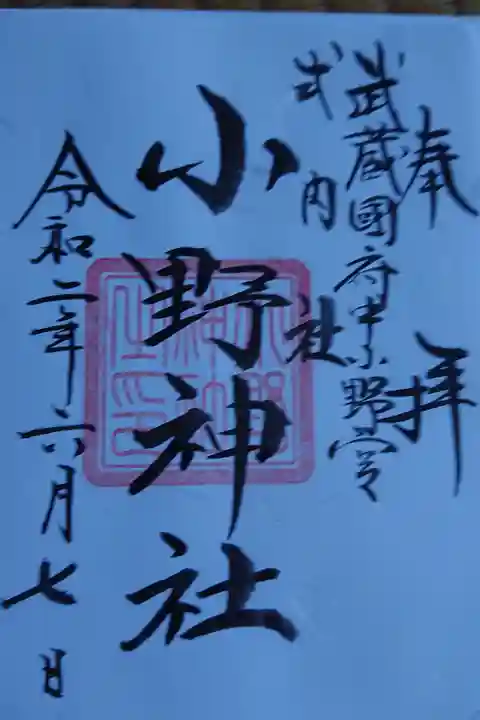 奉拝
武蔵國府中小野宮
式内社
小野神社
令和二年六月七日